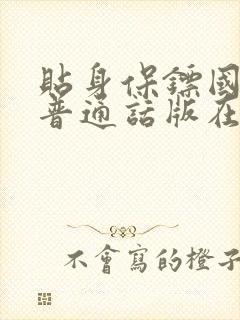 貼身保鏢國
普通話版在
不會寫的橙子